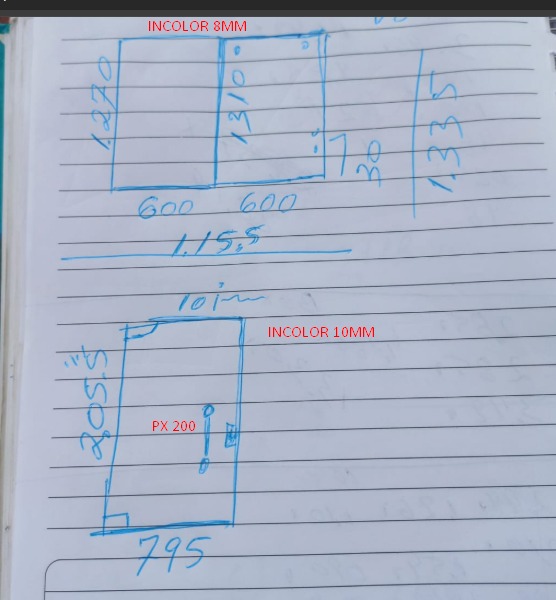 INCOLOR 8MM
1.270
1.310
30
1.335
600 600
1.15.5
INCOLOR 10MM
2.05.5
PX 200
795